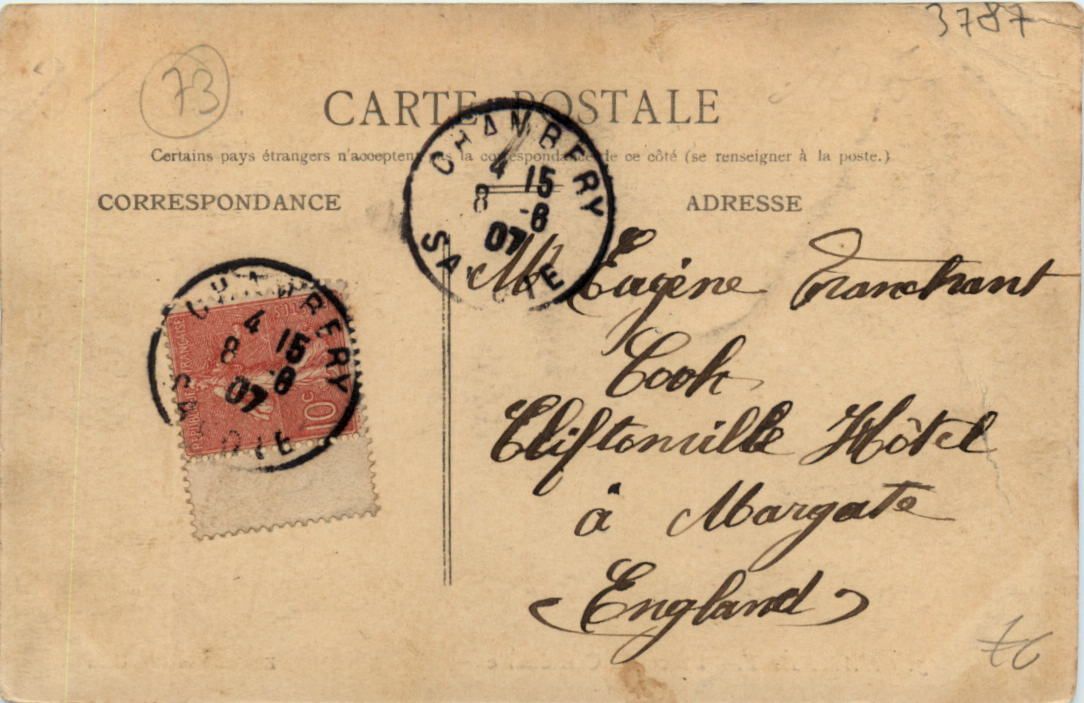 3787
73
CARTE POSTALE
Certains pays étrangers n'acceptent pas la correspondance de ce côté (se renseigner à la poste.)
CORRESPONDANCE
ADRESSE
CHAMBERY
4 15
8 -8
07
SAVOIE
Mr Eugène Tranchant
Cook
Cliftonville Hôtel
à Margate
(England)
CHAMBERY
4 15
8 -8
07
SAVOIE
REPUBLIQUE FRANCAISE
10c